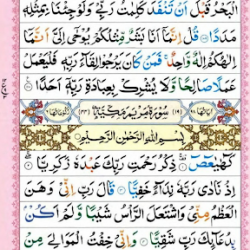 الْبَحْرُ قَبْلَ اَنْ تَنْفَدَ كَلِمٰتُ رَبِّیْ وَلَوْ جِئْنَا بِمِثْلِهٖ
مَدَدًا قُلْ اِنَّمَاۤ اَنَا بَشَرٌ مِّثْلُكُمْ یُوْحٰۤی اِلَیَّ اَنَّمَاۤ
اِلٰهُكُمْ اِلٰهٌ وَّاحِدٌ فَمَنْ كَانَ یَرْجُوْا لِقَآءَ رَبِّهٖ فَلْیَعْمَلْ
عَمَلًا صَالِحًا وَّلَا یُشْرِكْ بِعِبَادَةِ رَبِّهٖۤ اَحَدًا
سُوْرَةُ مَرْیَمَ مَكِّیَّةٌ
بِسْمِ اللّٰهِ الرَّحْمٰنِ الرَّحِیْمِ
كٓهٰیٰعٓصٓ ذِكْرُ رَحْمَتِ رَبِّكَ عَبْدَهٗ زَكَرِیَّا
اِذْ نَادٰی رَبَّهٗ نِدَآءً خَفِیًّا قَالَ رَبِّ اِنِّیْ وَهَنَ
الْعَظْمُ مِنِّیْ وَاشْتَعَلَ الرَّاْسُ شَیْبًا وَّلَمْ اَكُنْۢ
بِدُعَآىِٕكَ رَبِّ شَقِیًّا وَاِنِّیْ خِفْتُ الْمَوَالِیَ مِنْ